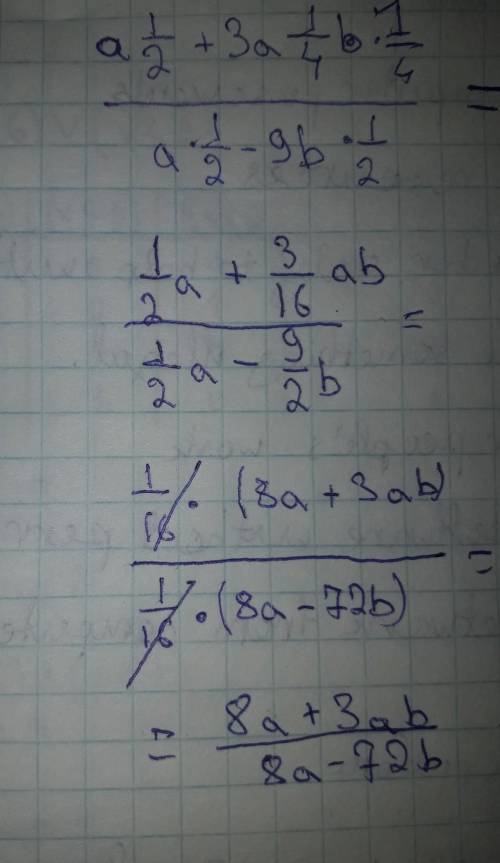 a 1/2 + 3a 1/4 b · 1/4 =
a · 1/2 - 9b · 1/2
1/2 a + 3/16 ab =
1/2 a - 9/2 b
1/16 · (8a + 3ab) =
1/16 · (8a - 72b)
= 8a + 3ab
8a - 72b